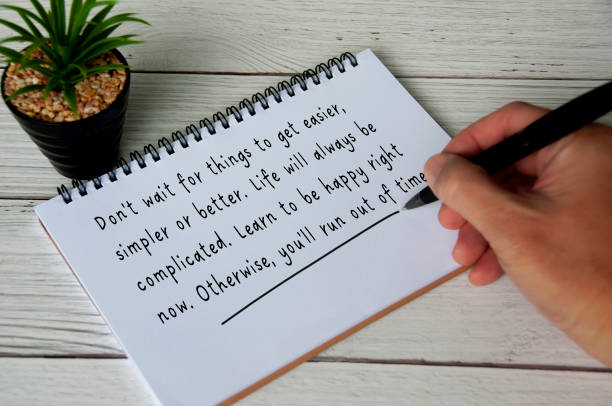 Don't wait for things to get easier,
simpler or better. Life will always be
complicated. Learn to be happy right
now. Otherwise, you'll run out of time